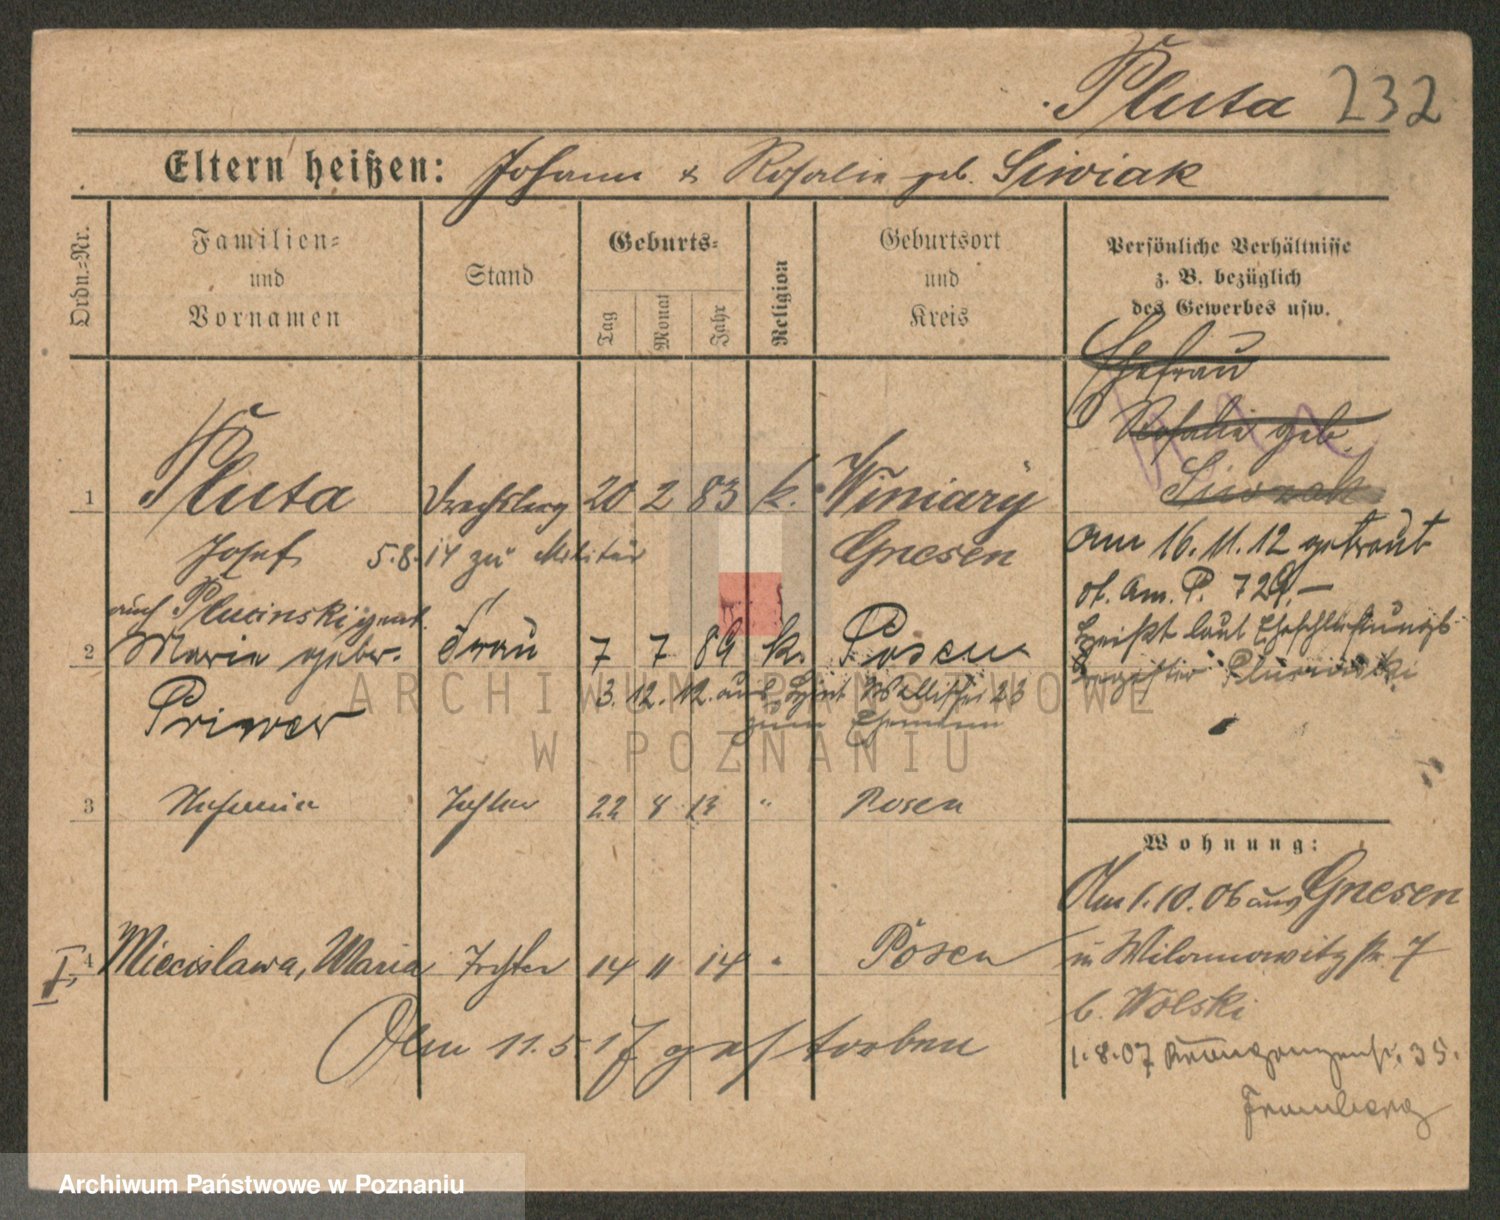 Pluta 232
Eltern heißen: Johann & Rosalie geb. Siwiak
Ordn.=Nr.
Familien=
und
Vornamen
Stand
Geburts=
Tag
Monat
Jahr
Religion
Geburtsort
und
Kreis
Persönliche Verhältnisse
z. B. bezüglich
des Gewerbes usw.
Ehefrau
Rosalie geb.
1 Pluta 20 2 83 k. Winiary
Josef 5.8.14 zu Militär Gnesen
am 16.11.12 getraut
St. Am. P. 729.-
auch Plucinski gent.
heißt laut Eheschließungs
2 Marie geber. Frau 7 7 89 k. Posen
Register
3.12.12. aus
zum Ehemann
3 Tochter 22 8 13 " Posen
Wohnung:
Am 1.10.06 aus Gnesen
4 Miecislawa, Maria Tochter 14 11 14 " Posen
in Wilamowitzstr. 7
b. Wolski
Am 11.5.17 gestorben
1.8.07 35.
ARCHIWUM PAŃSTWOWE
W POZNANIU
Archiwum Państwowe w Poznaniu